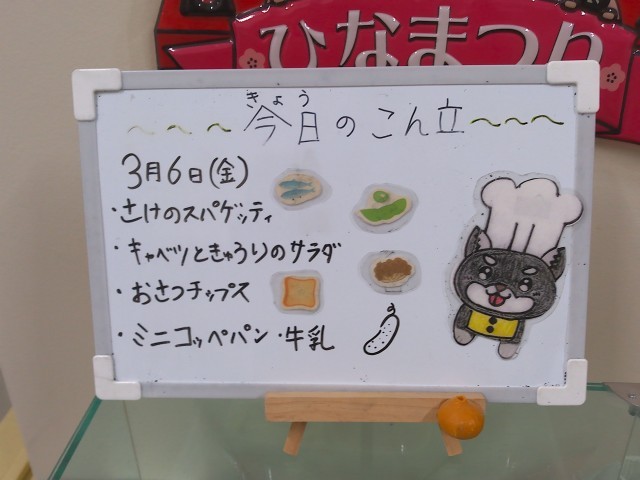 ひなまつり
きょう
~~~今日のこん立~~~
3月6日(金)
・さけのスパゲッティ
・キャベツときゅうりのサラダ
・おさつチップス
・ミニコッペパン ・牛乳